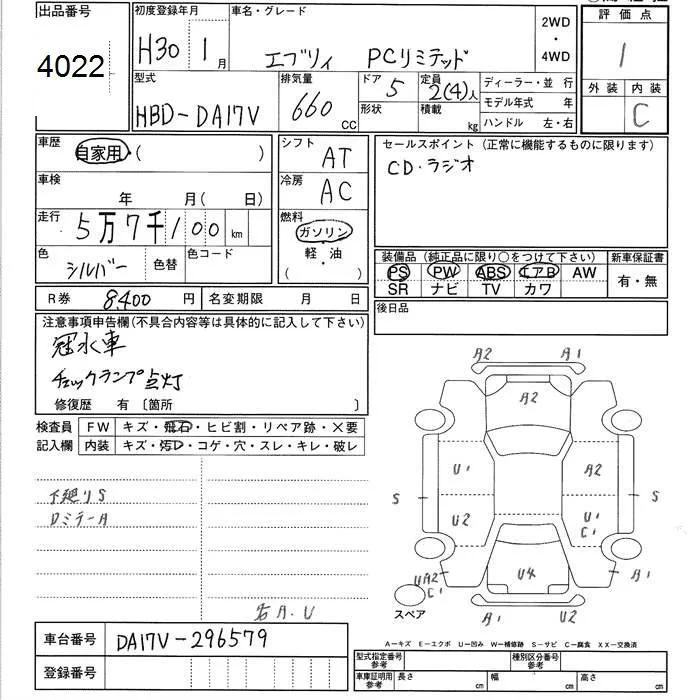 出品番号
4022
初度登録年月
H30 1月
車名・グレード
エブリイ PCリミテッド
2WD
・
4WD
評価点
1
外装 内装
C
型式
HBD-DA17V
排気量
660 CC
ドア
5
形状
定員
2(4)人
積載
kg
ディーラー・並行
モデル年式 年
ハンドル 左・右
車歴
自家用・( )
車検
年 月( 日)
走行
5万7千100km
色
シルバー
色替
色コード
シフト
AT
冷房
AC
燃料
ガソリン
軽・油
( )
セールスポイント(正常に機能するものに限ります)
CD・ラジオ
装備品(純正品に限り○をつけて下さい)
PS PW ABS エアB AW
SR ナビ TV カワ
新車保証書
有・無
R券 8400円
名変期限 月 日
後日品
注意事項申告欄(不具合内容等は具体的に記入して下さい)
冠水車
チェックランプ点灯
修復歴 有〔箇所 〕
検査員
記入欄
FW キズ・飛石・ヒビ割・リペア跡・×要
内装 キズ・汚D・コゲ・穴・スレ・キレ・破レ
下廻りS
DミラーA
右A.U
A2 A1
A2
U1 A2
S S
U2 U1
C1
UA2
C1
U4
A1
スペア
A1 U2
A-キズ E-エクボ U-凹み W-補修跡 S-サビ C-腐食 XX-交換済
車台番号 DA17V-296579
登録番号
型式指定番号
参考
種別区分番号
参考
車庫証明用
参考
長さ cm 幅 cm 高さ cm